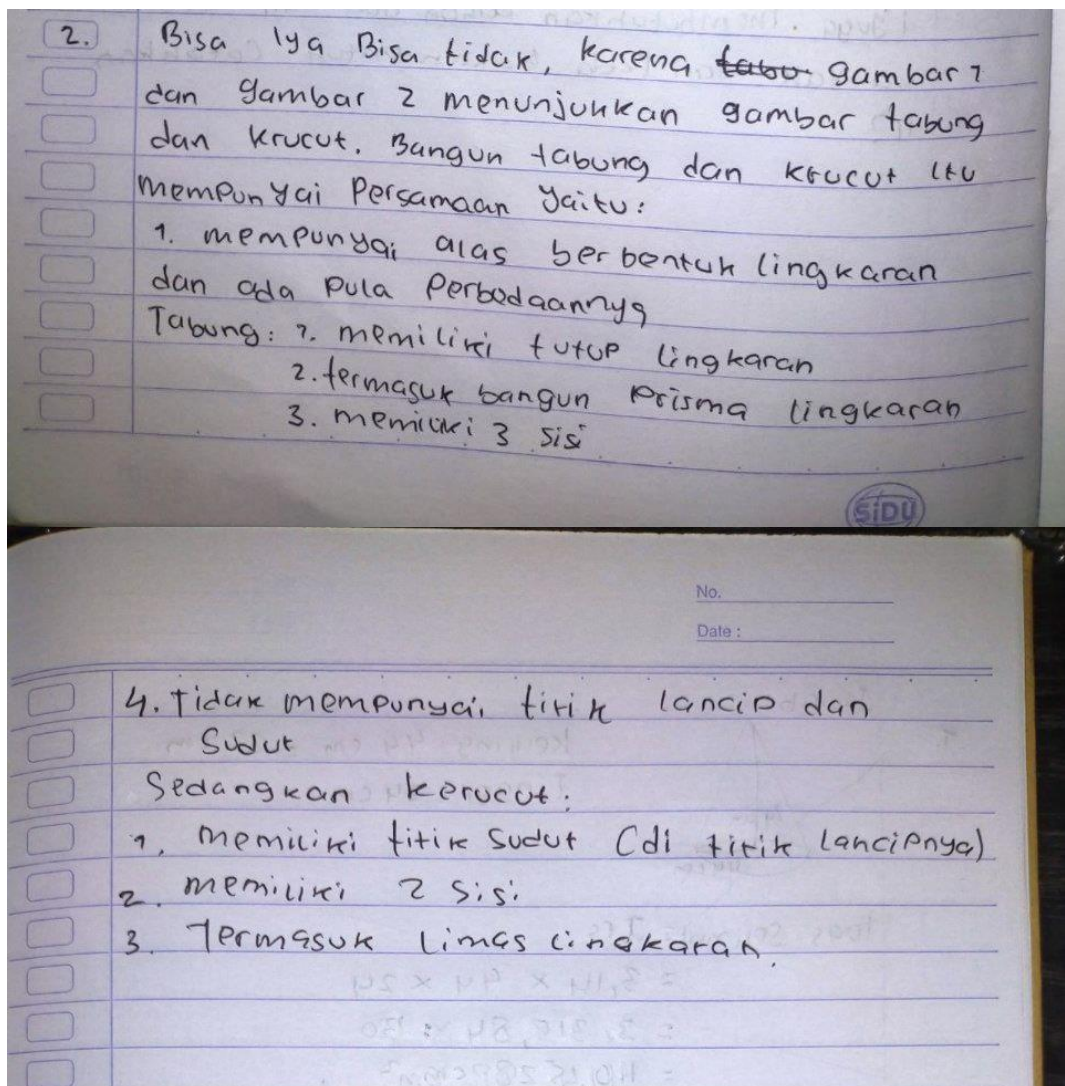 2. Bisa iya Bisa tidak, karena tabu gambar 1
dan gambar 2 menunjukkan gambar tabung
dan krucut. Bangun tabung dan krucut itu
mempunyai Persamaan yaitu:
1. mempunyai alas berbentuk lingkaran
dan ada pula Perbedaannya
Tabung: 1. memiliki tutup lingkaran
2. termasuk bangun Prisma lingkaran
3. memiliki 3 sisi
SiDU
No.
Date :
4. Tidak mempunyai titik lancip dan
Sudut
Sedangkan kerucut:
1. memiliki titik Sudut (di titik Lancipnya)
2. memiliki 2 sisi
3. Termasuk Limas lingkaran.